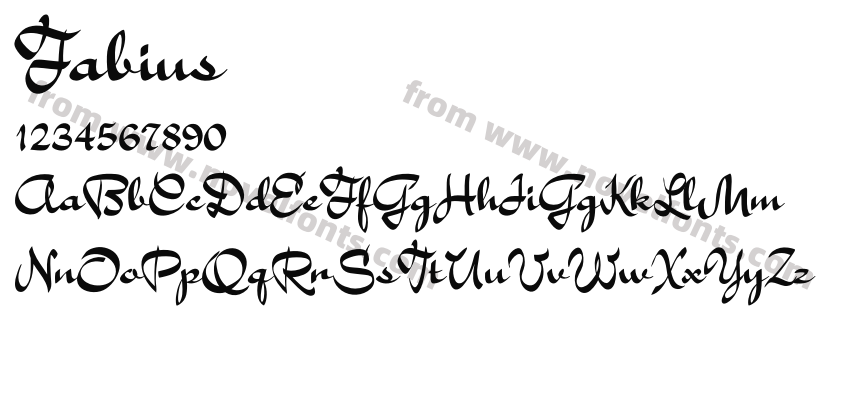 Fabius
1234567890
AaBbCcDdEeFfGgHhIiGgKkLlMm
NnOoPpQqRrSsTtUuVvWwXxYyZz
from www.novelfonts.com
from www.novelfonts.com